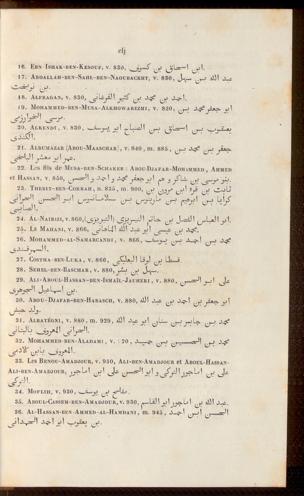 clj
16. Ebn Ishak-ben-Kesouf, v. 830, ابن اسحاق بن كسوف.
17. Abdallah-ben-Sahl-ben-Naoubacht, v. 830, عبد الله بن سهل
بن نوبخت.
18. Alfragan, v. 830, احمد بن محمد بن كثير الفرغانى.
19. Mohammed-ben-Musa-Alkhowarezmi, v. 820, ابو جعفر محمد بن
موسى الخوارزمى.
20. Alkendi, v. 830, يعقوب بن اسحاق بن الصباح ابو يوسف
الكندى.
21. Albumazar (Abou-Maaschar), v. 840, m. 885, جعفر بن محمد بن
عمر ابو معشر البلخى.
22. Les fils de Musa-ben-Schaker: Abou-Djafar-Mohammed, Ahmed
et Hassan, v. 850, بنو موسى بن شاكر وهم ابو جعفر محمد و احمد و الحسن.
23. Thebit-ben-Corrah, n. 835, m. 900, ثابت بن قرة بن مرون بن
الصابى.
24. Al-Nairizi, v. 860, ابو العباس الفضل بن حاتم التبريزى (النيريزى).
25. Le Mahani, v. 866, محمد بن عيسى ابو عبد الله الماهانى.
26. Mohammed-al-Samarcandi, v. 866, محمد بن احمد بن يوسف
السمرقندى.
27. Costha-ben-Luka, v. 866, قسطا بن لوقا البعلبكى.
28. Sehel-ben-Baschar, v. 880, سهل بن بشر.
29. Ali-Aboul-Hassan-ben-Ismaïl-Jauheri, v. 880, على ابو الحسن
بن اسماعيل الجوهرى.
30. Abou-Djafar-ben-Habasch, v. 880, ابو جعفر بن احمد بن عبد الله
ولد حبش.
31. Albatégni, v. 880, m. 929, محمد بن جابر بن سنان ابو عبد الله
الحرانى المعروف بالبتانى.
32. Mohammed-ben-Aladami, v. 920, محمد بن الحسين بن حميد
33. Les Benou-Amadjour, v. 930, Ali-ben-Amadjour et Aboul-Hassan-
Ali-ben-Amadjour, على بن اماجور التركى و ابو الحسن على ابن اماجور
التركى.
34. Moflih, v. 930, مفلح بن يوسف.
35. Aboul-Cassem-ben-Amadjour, v. 930, عبد الله بن اماجور ابو القاسم.
36. Al-Hassan-ben-Ahmed-al-Hamdani, m. 945, الحسن ابن احمد
بن يعقوب ابو احمد الهمدانى.